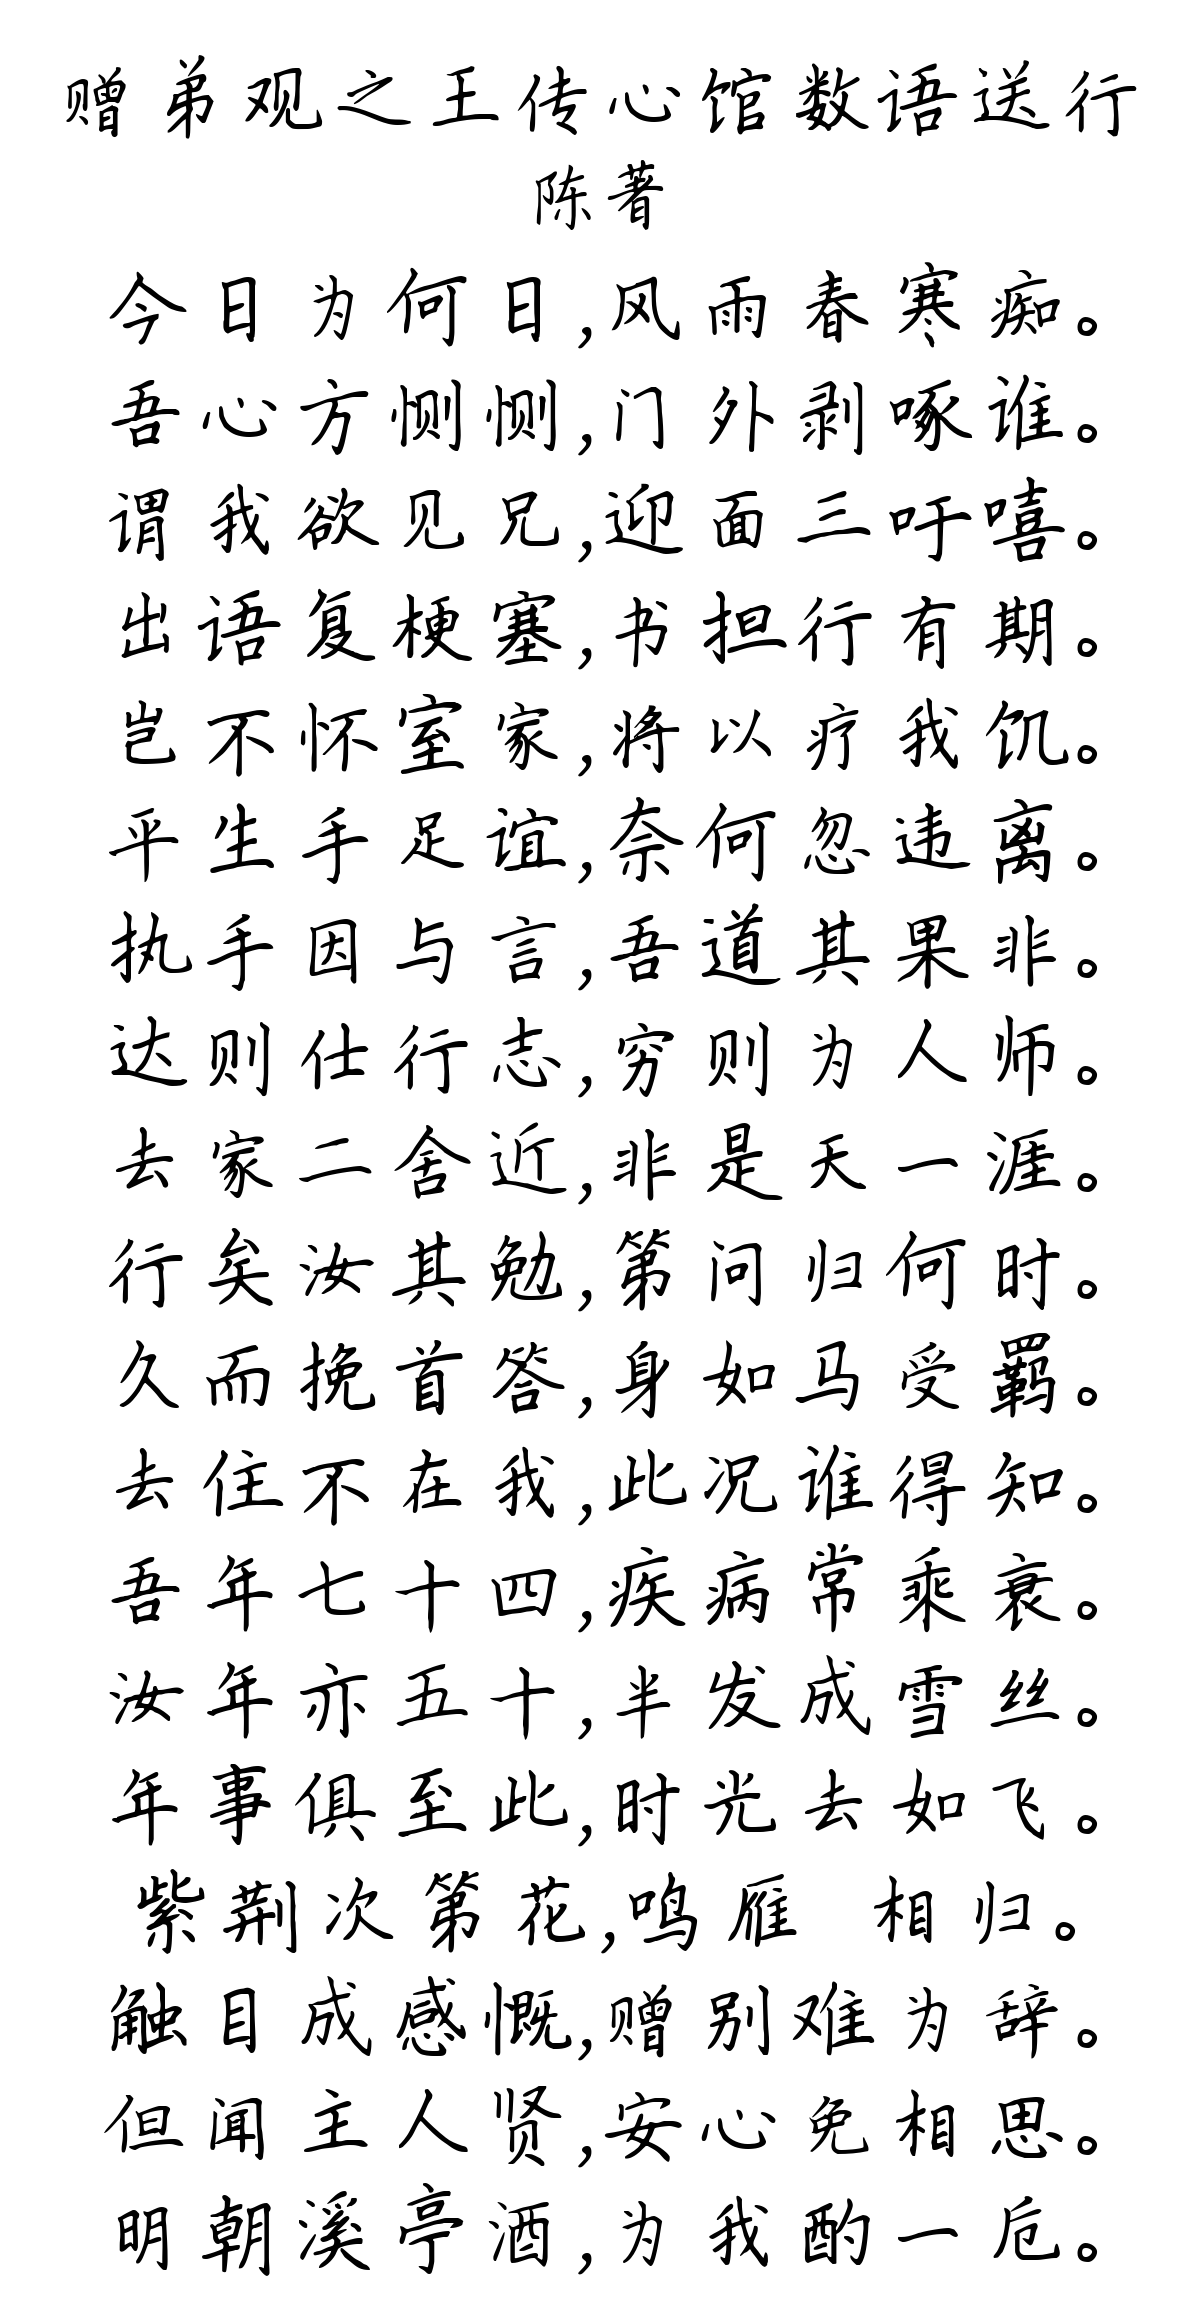 赠弟观之王传心馆数语送行
陈著
今日为何日,风雨春寒痴。
吾心方恻恻,门外剥啄谁。
谓我欲见兄,迎面三吁嘻。
出语复梗塞,书担行有期。
岂不怀室家,将以疗我饥。
平生手足谊,奈何忽违离。
执手因与言,吾道其果非。
达则仕行志,穷则为人师。
去家二舍近,非是天一涯。
行矣汝其勉,第问归何时。
久而挽首答,身如马受羁。
去住不在我,此况谁得知。
吾年七十四,疾病常乘衰。
汝年亦五十,半发成雪丝。
年事俱至此,时光去如飞。
紫荆次第花,鸣雁 相归。
触目成感慨,赠别难为辞。
但闻主人贤,安心免相思。
明朝溪亭酒,为我酌一卮。